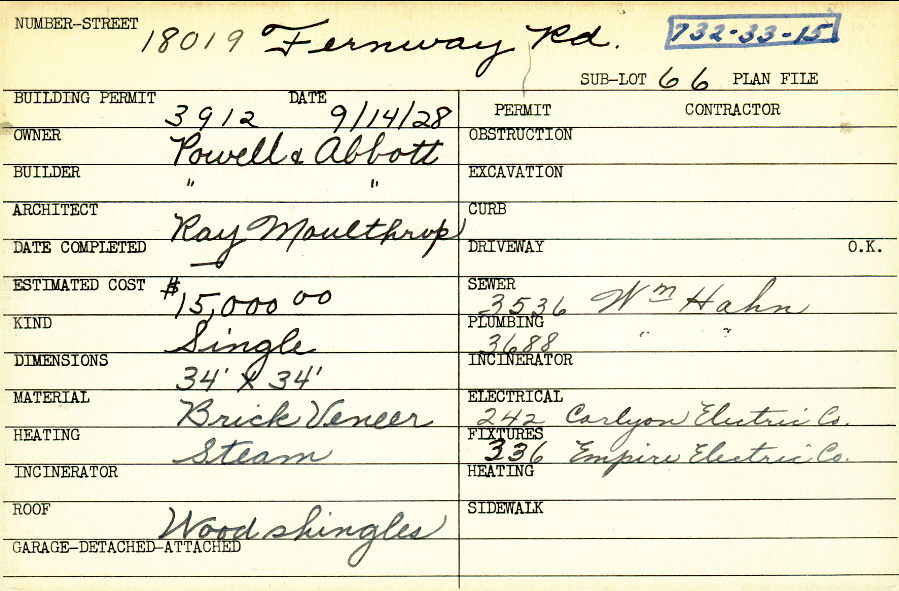 NUMBER-STREET 18019 Fernway Rd. 732-33-15
SUB-LOT 66 PLAN FILE
BUILDING PERMIT 3912 DATE 9/14/28
OWNER Powell & Abbott
BUILDER " "
ARCHITECT Ray Moulthrop
DATE COMPLETED
ESTIMATED COST $15,000 00
KIND Single
DIMENSIONS 34' x 34'
MATERIAL Brick Veneer
HEATING Steam
INCINERATOR
ROOF Wood shingles
GARAGE-DETACHED-ATTACHED
PERMIT CONTRACTOR
OBSTRUCTION
EXCAVATION
CURB
DRIVEWAY O.K.
SEWER 3536 Wm Hahn
PLUMBING 3688 " "
INCINERATOR
ELECTRICAL 242 Carlyon Electric Co.
FIXTURES 336 Empire Electric Co.
HEATING
SIDEWALK